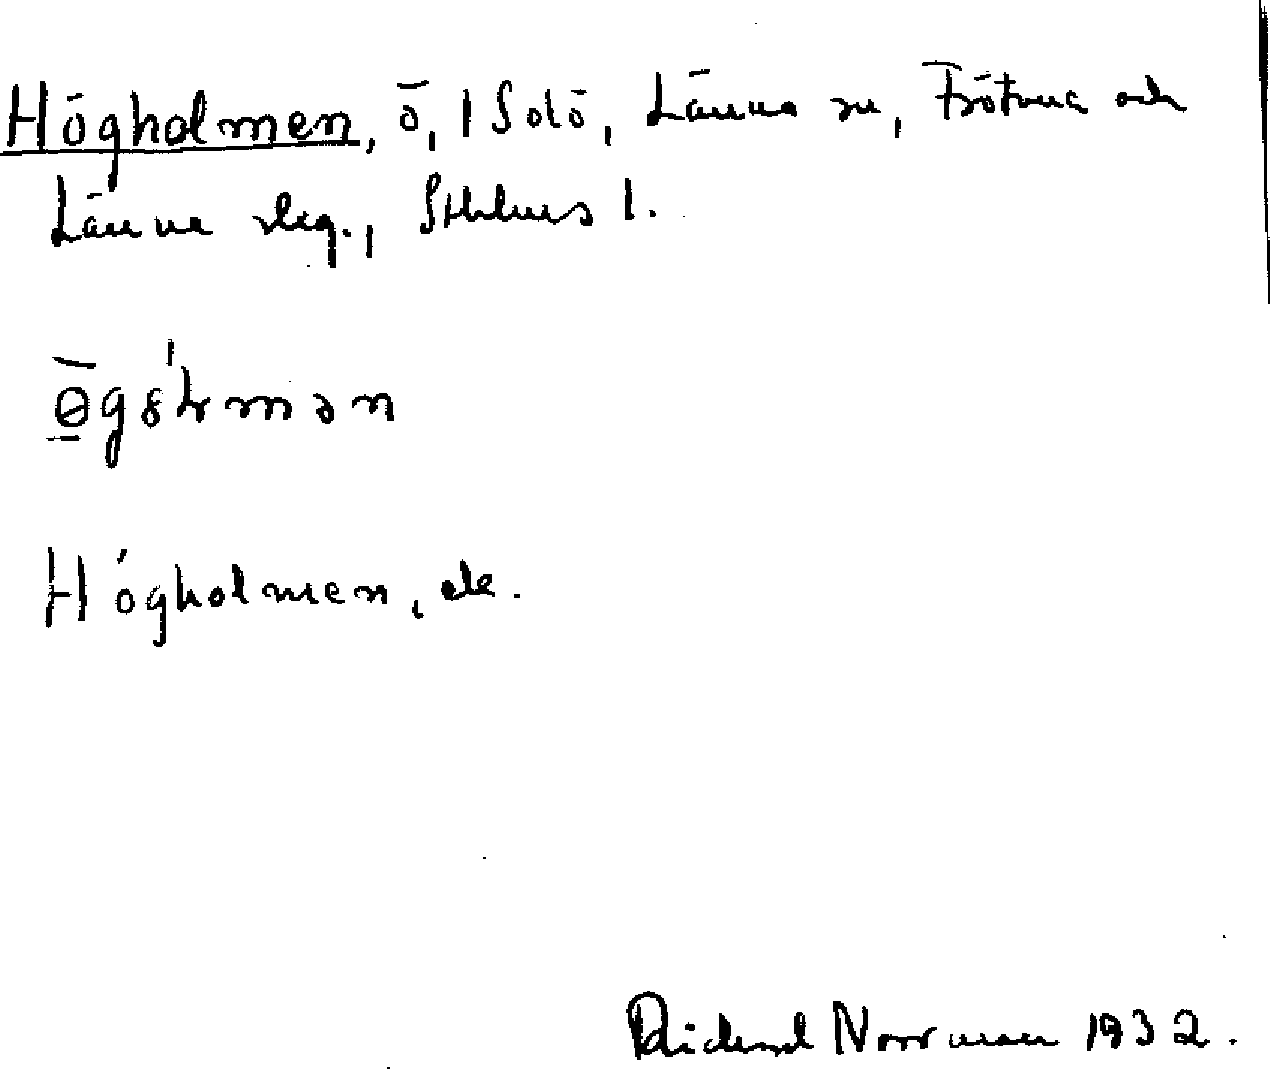 Högholmen, ö, 1 Solö, Länna sn, Frötuna och
Länna slg., Sthlms l.
Högholmen, ek.
Rickard Norrman 1932.